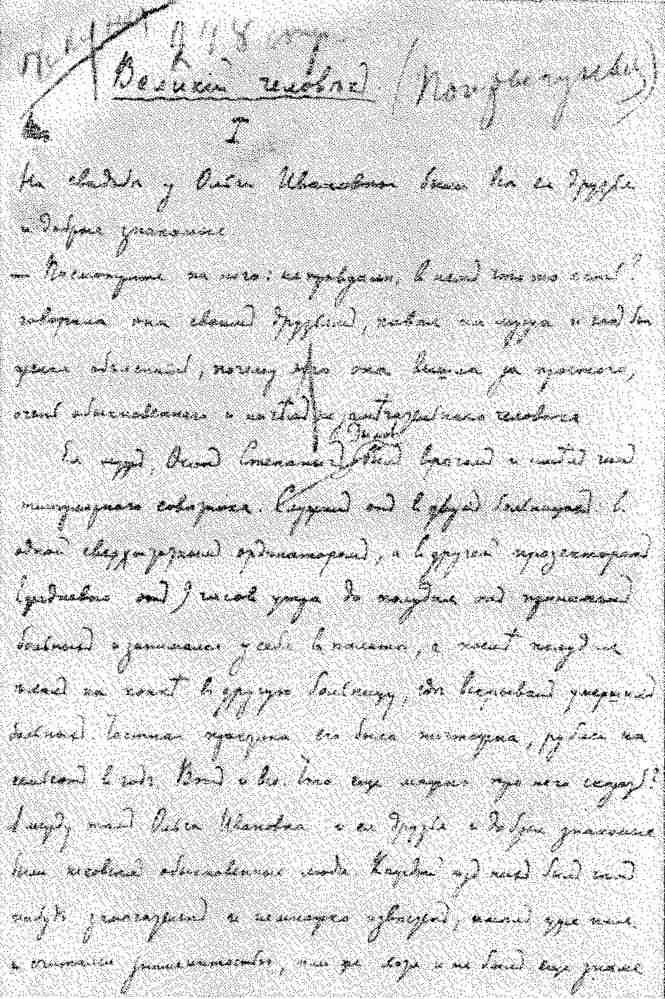 248 стр.
Великій человѣкъ (Попрыгунья)
I
На свадьбѣ у Ольги Ивановны были всѣ ея друзья
и добрые знакомые
— Посмотрите на него: не правда ли, въ немъ что-то есть?
говорила она своимъ друзьямъ, кивая на мужа и какъ бы
желая объяснить, почему это она вышла за простого,
очень обыкновеннаго и ничѣмъ не замѣчательнаго человѣка
Ея мужъ, Осипъ Степанычъ Дымовъ, былъ врачомъ и имѣлъ чинъ
титулярнаго совѣтника. Служилъ онъ въ двухъ больницахъ: въ
одной сверхштатнымъ ординаторомъ, а въ другой прозекторомъ
Ежедневно отъ 9 часовъ утра до полудня онъ принималъ
больныхъ и занимался у себя въ палатѣ, а послѣ полудня
ѣхалъ на конкѣ въ другую больницу, гдѣ вскрывалъ умершихъ
больныхъ. Частная практика его была ничтожна, рублей на
пятьсотъ въ годъ. Вотъ и все. Что еще можно про него сказать?
А между тѣмъ Ольга Ивановна и ея друзья и добрые знакомые
были не совсѣмъ обыкновенные люди. Каждый изъ нихъ былъ чѣмъ
нибудь замѣчателенъ и немножко извѣстенъ, имѣлъ уже имя
и считался знаменитостью, или же хотя и не былъ еще знаме